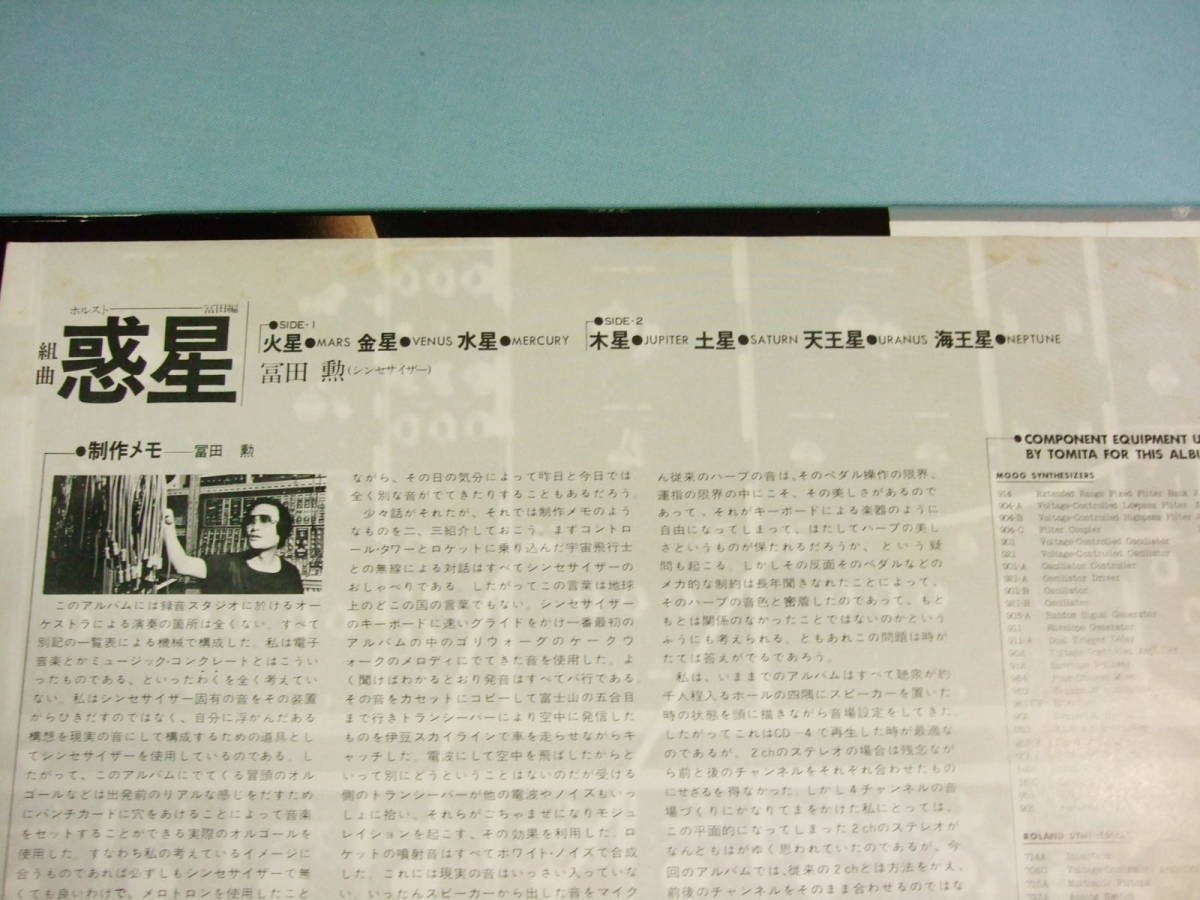 ホルスト 冨田編
組曲
惑星
●SIDE-1
火星●MARS 金星●VENUS 水星●MERCURY
●SIDE-2
木星●JUPITER 土星●SATURN 天王星●URANUS 海王星●NEPTUNE
冨田 勲(シンセサイザー)
●制作メモ 冨田 勲
このアルバムには録音スタジオに於けるオー
ケストラによる演奏の箇所は全くない。すべて
別記の一覧表による機械で構成した。私は電子
音楽とかミュージック・コンクレートとはこうい
ったものである、といったわくを全く考えてい
ない。私はシンセサイザー固有の音をその装置
からひきだすのではなく、自分に浮かんだある
構想を現実の音にして構成するための道具とし
てシンセサイザーを使用しているのである。し
たがって、このアルバムにでてくる冒頭のオル
ゴールなどは出発前のリアルな感じをだすため
にパンチカードに穴をあけることによって音楽
をセットすることができる実際のオルゴールを
使用した。すなわち私の考えているイメージに
合うものであれば必ずしもシンセサイザーで無
くても良いわけで、メロトロンを使用したこと
ながら、その日の気分によって昨日と今日では
全く別な音がでてきたりすることもあるだろう。
少々話がそれたが、それでは制作メモのよ
うなものを二、三紹介しておこう。まずコントロ
ール・タワーとロケットに乗り込んだ宇宙飛行士
との無線による対話はすべてシンセサイザーの
おしゃべりである。したがってこの言葉は地球
上のどこの国の言葉でもない。シンセサイザー
のキーボードに速いグライドをかけ一番最初の
アルバムの中のゴリウォーグのケークウ
ォークのメロディにでてきた音を使用した。よ
く聞けばわかるとおり発音はすべてパ行である。
その音をカセットにコピーして富士山の五合目
まで行きトランシーバーにより空中に発信した
ものを伊豆スカイラインで車を走らせながらキ
ャッチした。電波にして空中を飛ばしたからと
いって別にどうということはないのだが受ける
側のトランシーバーが他の電波やノイズもいっ
しょに拾い、それらがごちゃまぜになりモジュ
レイションを起こす、その効果を利用した。ロ
ケットの噴射音はすべてホワイト・ノイズで合成
した。これには現実の音はいっさい入っていな
い。いったんスピーカーから出した音をマイク
ん従来のハープの音は、そのペダル操作の限界、
運指の限界の中にこそ、その美しさがあるので
あって、それがキーボードによる楽器のように
自由になってしまって、はたしてハープの美し
さというものが保たれるだろうか、という疑
問も起こる。しかしその反面そのペダルなどの
メカ的な制約は長年聞きなれたことによって、
そのハープの音色と密着したのであって、もと
もとは関係のなかったことではないのかという
ふうにも考えられる。ともあれこの問題は時が
たてば答えがでるであろう。
私は、いままでのアルバムはすべて聴衆が約
千人程入るホールの四隅にスピーカーを置いた
時の状態を頭に描きながら音場設定をしてきた。
したがってこれはCD-4で再生した時が最適な
のであるが、2chのステレオの場合は残念なが
ら前と後のチャンネルをそれぞれ合わせたもの
にせざるを得なかった。しかし4チャンネルの音
場づくりにかなりてまをかけた私にとっては、
この平面的になってしまった2chのステレオが
なんともはがゆく思われていたのであるが、今
回のアルバムでは、従来の2chとは方法をかえ、
前後のチャンネルをそのまま合わせるのではな
●COMPONENT EQUIPMENT U
BY TOMITA FOR THIS ALBU
MOOG SYNTHESIZERS
914 Extended Range Fixed Filter Bank
904-A Voltage-Controlled Lowpass Filter
904-B Voltage-Controlled Highpass Filter
904-C Filter Coupler
901 Voltage-Controlled Oscillator
921 Voltage-Controlled Oscillator
901-A Oscillator Controller
921-A Oscillator Driver
901-B Oscillator
921-B Oscillator
903-A Random Signal Generator
911 Envelope Generator
911-A Dual Trigger Delay
ROLAND